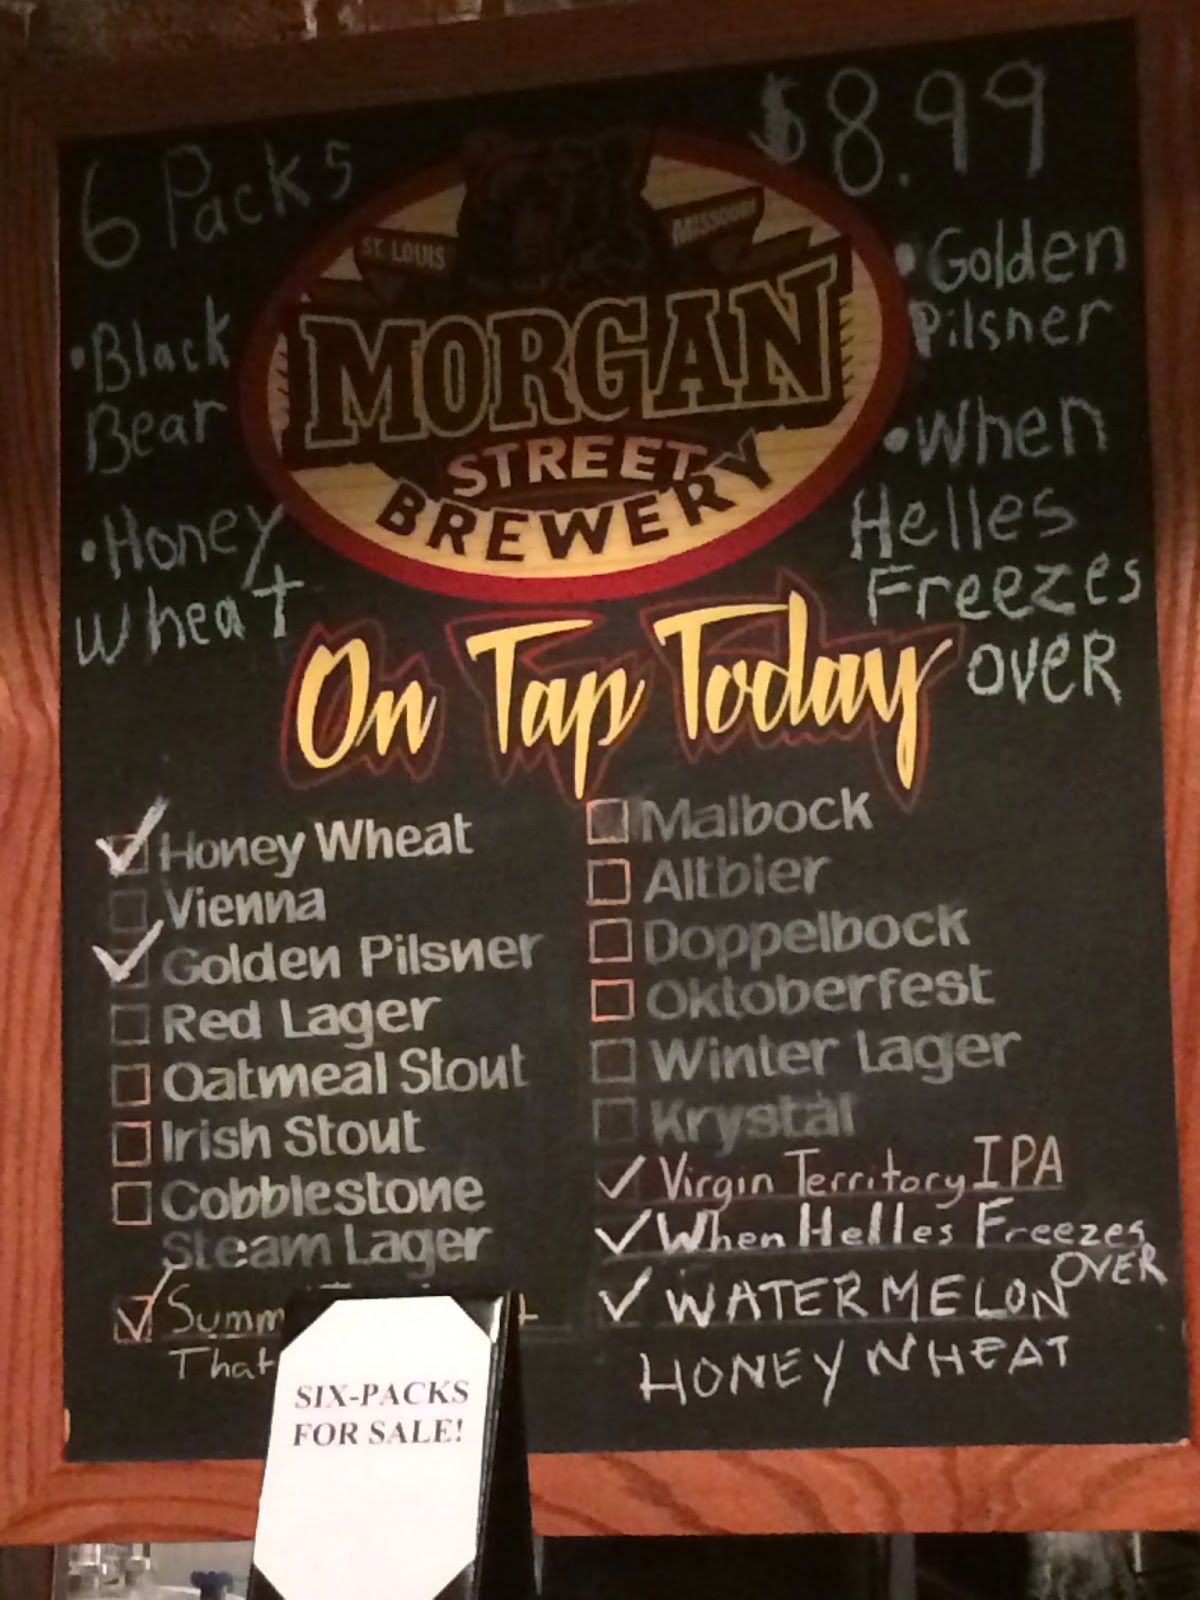 6 Packs
$8.99
• Black
Bear
• Honey
Wheat
ST. LOUIS
MISSOURI
MORGAN
STREET
BREWERY
• Golden
Pilsner
• When
Helles
Freezes
OVER
On Tap Today
Honey Wheat
Vienna
Golden Pilsner
Red Lager
Oatmeal Stout
Irish Stout
Cobblestone
Steam Lager
That
Maibock
Altbier
Doppelbock
Oktoberfest
Winter Lager
Krystal
Virgin Territory IPA
When Helles Freezes
OVER
WATERMELON
HONEY WHEAT
SIX-PACKS
FOR SALE!